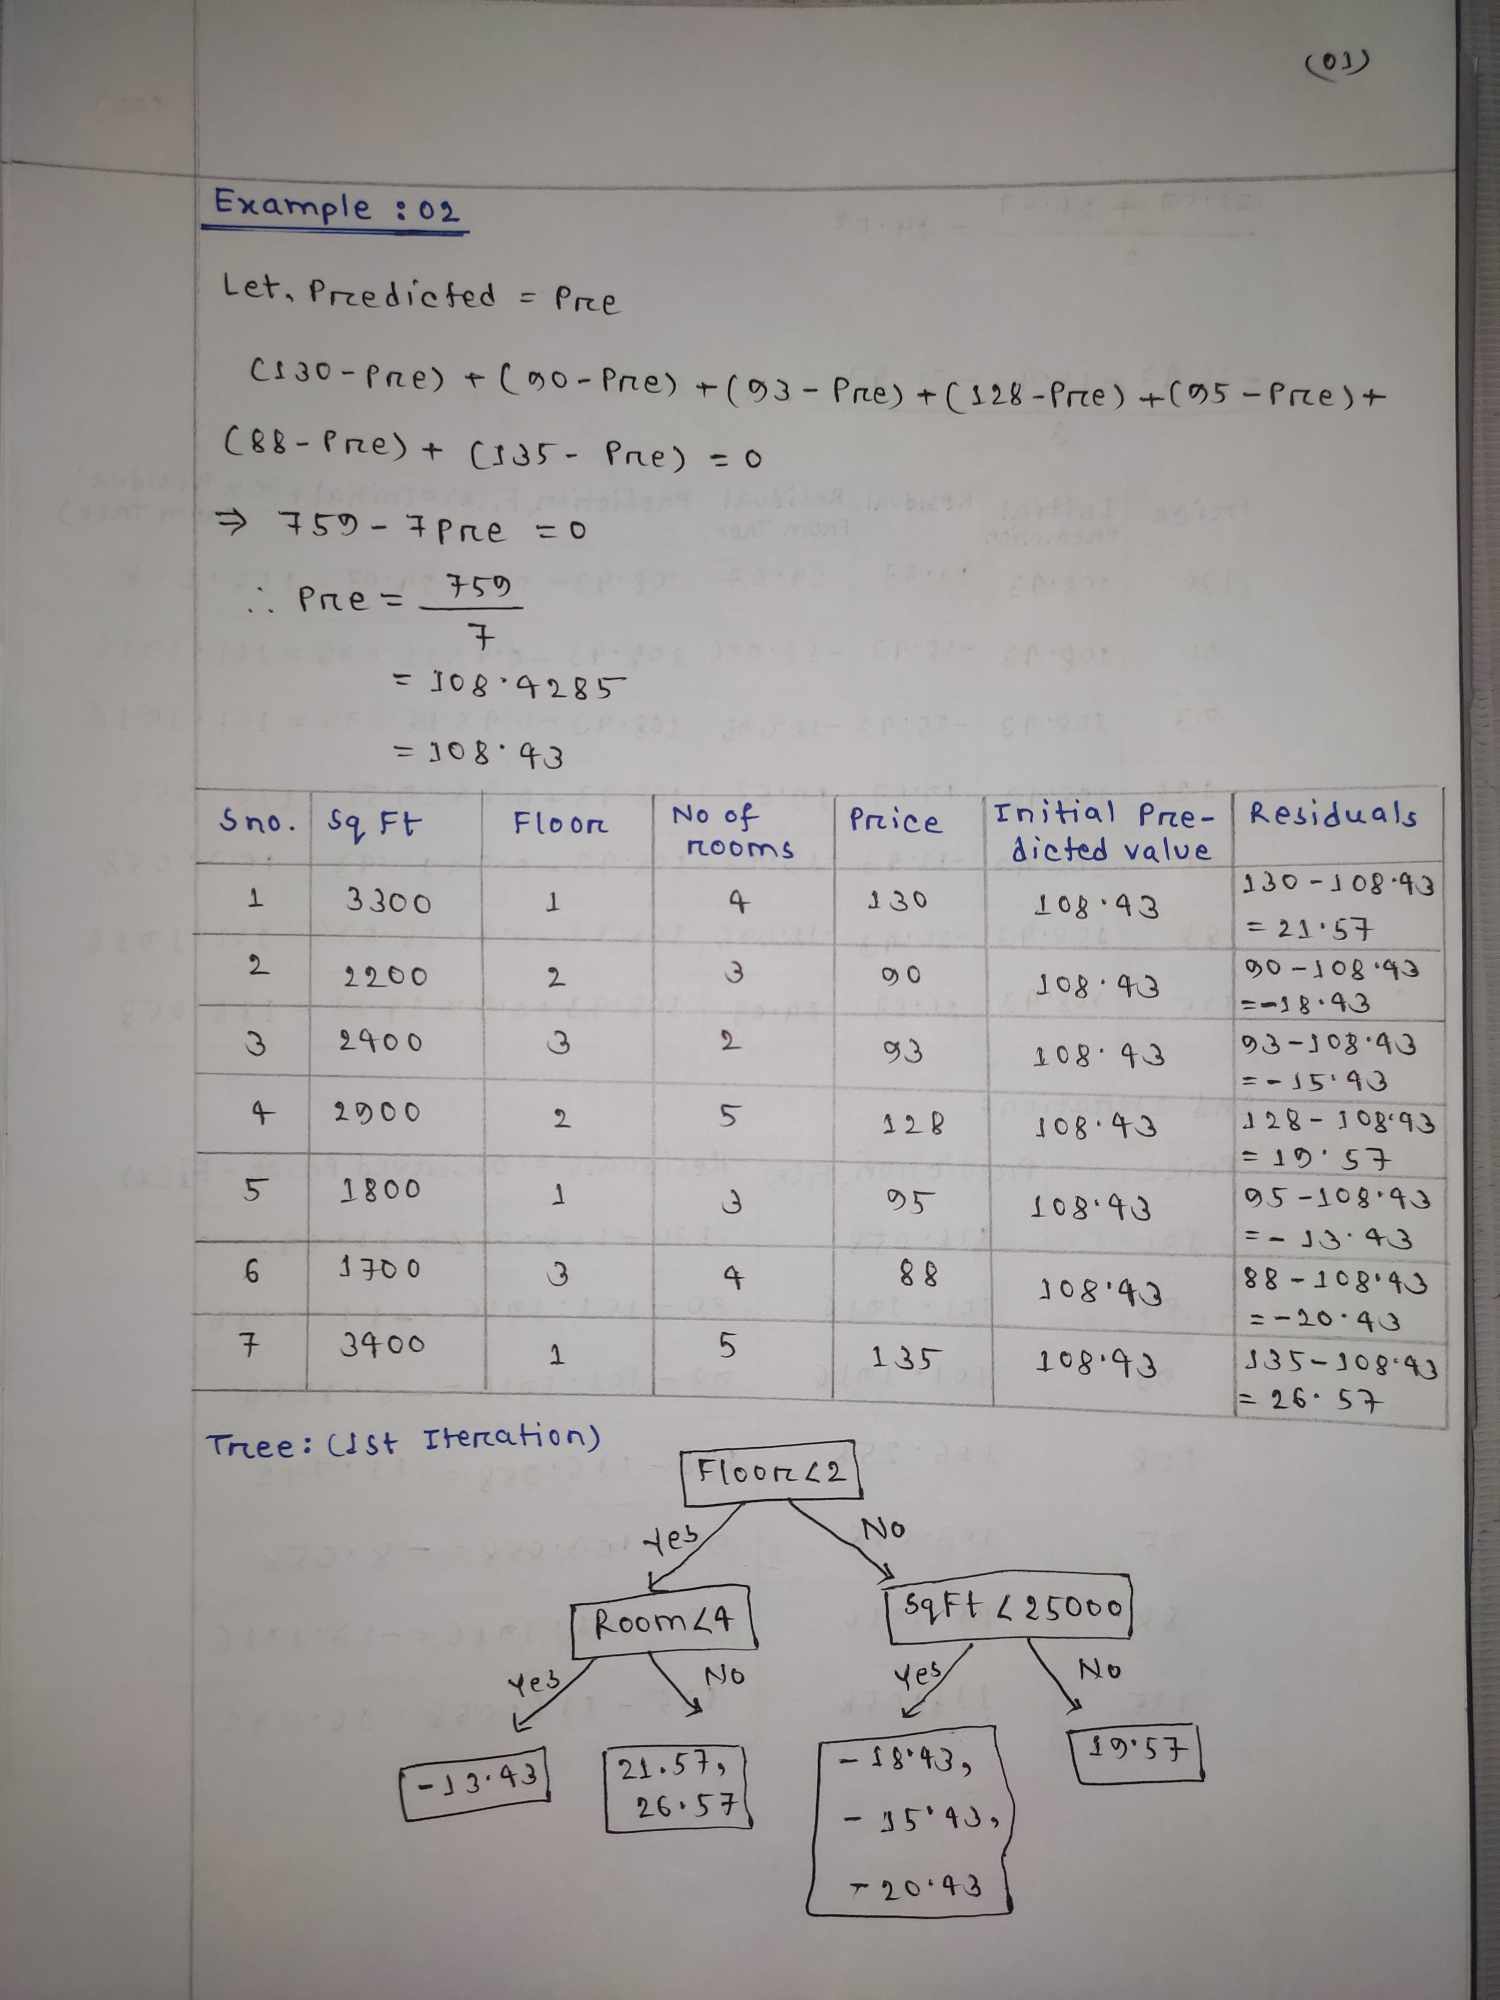 (01)
Example : 02
Let, Predicted = Pre
(130 - Pre) + (90 - Pre) + (93 - Pre) + (128 - Pre) + (95 - Pre) +
(88 - Pre) + (135 - Pre) = 0
⇒ 759 - 7Pre = 0
∴ Pre = 759
7
= 108.4285
= 108.43
Sno. Sq Ft Floor No of rooms Price Initial Pre-dicted value Residuals
1 3300 1 4 130 108.43 130 - 108.43 = 21.57
2 2200 2 3 90 108.43 90 - 108.43 = -18.43
3 2400 3 2 93 108.43 93 - 108.43 = -15.43
4 2900 2 5 128 108.43 128 - 108.43 = 19.57
5 1800 1 3 95 108.43 95 - 108.43 = -13.43
6 1700 3 4 88 108.43 88 - 108.43 = -20.43
7 3400 1 5 135 108.43 135 - 108.43 = 26.57
Tree: (1st Iteration)
Floor < 2
Yes No
Room < 4 SqFt < 25000
Yes No Yes No
-13.43 21.57, -18.43, 19.57
26.57 -15.43,
-20.43